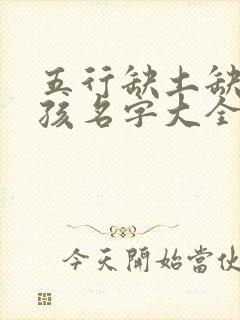 五行缺土缺
孩名字大全
今天開始當伙